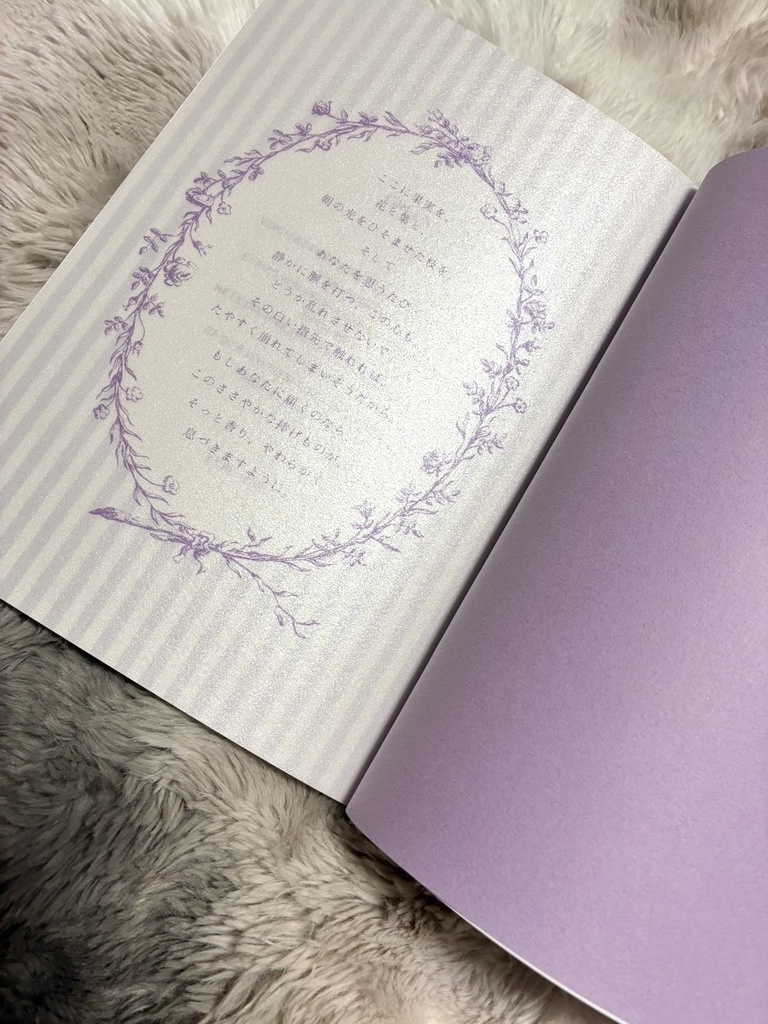 ここに果実を、
花と葉と、
朝の光をひそませた枝を
そして
あなたを思うたび
静かに脈を打つ、この心も。
どうか乱れさせないで
その白い指先で触れれば、
たやすく崩れてしまいそうだから。
もしあなたに届くのなら、
このささやかな捧げものが、
そっと香り、やわらかく
息づきますように。